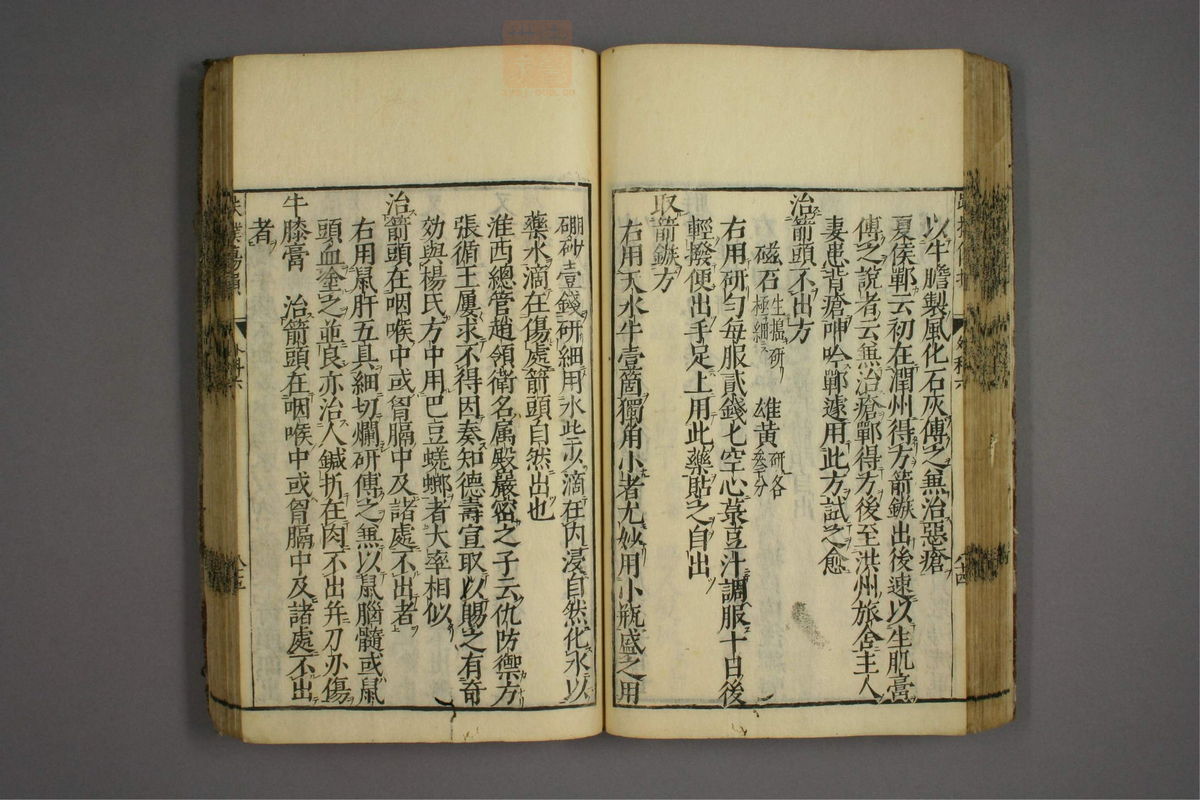 以牛膽製風化石灰傅之無治惡瘡
夏侯鄆云初在潤州得方箭鏃出後速以生肌膏
傅之說者云無治瘡鄆得方後至洪州旅舍主人
妻患背瘡呻吟鄆遽用此方試之愈
治箭頭不出方
磁石生搗研極細 雄黃研各參分
右用研勻每服貳錢匕空心菉豆汁調服十日後
輕撥便出手足上用此藥貼之自出
取箭鏃方
右用天水牛壹箇獨角小者尤妙用小瓶盛之用
硼砂壹錢研細用水些少滴在內浸自然化水以
藥水滴在傷處箭頭自然出也
淮西總管趙領衛名属殿嚴密之子云仇防禦方
張循王屢求不得因奏知德壽宣取以賜之有奇
効與楊氏方中用巴豆蜣蜋者大率相似
治箭頭在咽喉中或胷膈中及諸處不出者
右用鼠肝五具細切爛研傅之無以鼠腦髓或鼠
頭血塗之並良亦治人鍼折在肉不出并刀刃傷
牛膝膏 治箭頭在咽喉中或胷膈中及諸處不出
者